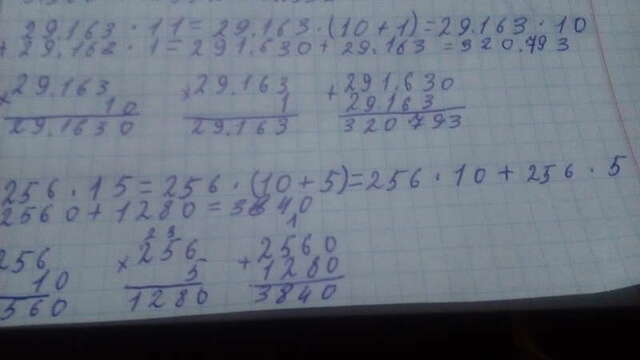 29.163 · 11 = 29.163 · (10 + 1) = 29.163 · 10
+ 29.162 · 1 = 291.630 + 29.163 = 320.793
× 29.163 × 29.163 + 291.630
10 1 29.163
29.1630 29.163 320793
256 · 15 = 256 · (10 + 5) = 256 · 10 + 256 · 5
2560 + 1280 = 3840
2 3 1
256 × 256 + 2560
10 5 1280
560 1280 3840